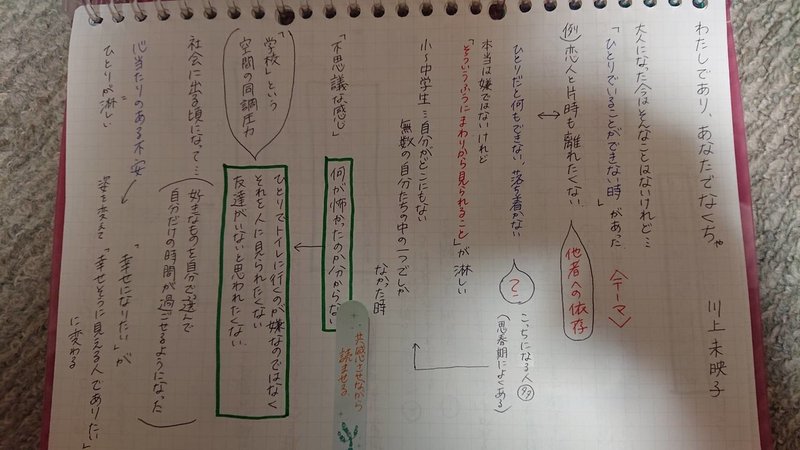 わたしであり、あなたでなくちゃ
川上未映子
大人になった今はそんなことはないけれど…
「ひとりでいることができない時」があった
〈テーマ〉
例 恋人と片時も離れたくない
他者への依存
ひとりだと何もできない、落ち着かない
てこ
こっちになる人多々
(思春期によくある)
本当は嫌ではないけれど
「そういうふうにまわりから見られること」が淋しい
小〜中学生:自分がどこにもない
無数の自分たちの中の一つでしか
なかった時
「不思議な感心」
何が怖かったのか分からない
共感させながら
読ませる
「学校」という
空間の同調圧力
ひとりでトイレに行くのが嫌なのではなく
それを人に見られたくない
友達がいないと思われたくない
社会に出る頃になって…
好きなものを自分で選んで
自分だけの時間が過ごせるようになった
心当たりのある不安
=
ひとりが淋しい
「幸せになりたい」が
姿を変えて
「幸せそうに見える人でありたい」
に変わる